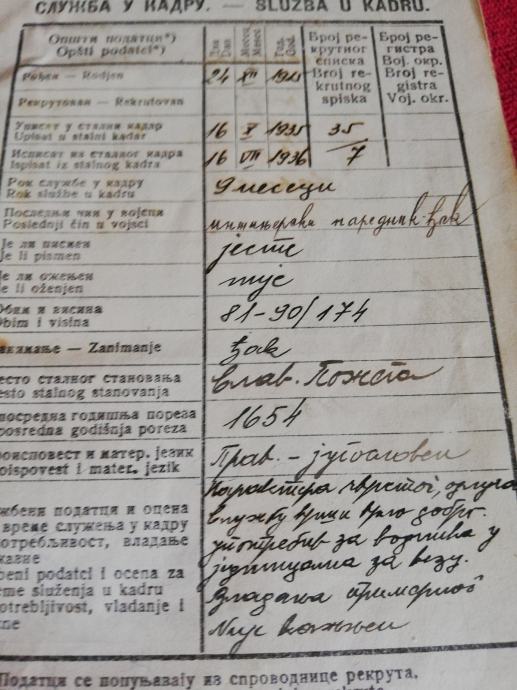 СЛУЖБА У КАДРУ. — SLUŽBA U KADRU.
Општи податци*)
Opšti podatci*)
Дан
Dan
Месец
Mesec
Год.
God.
Број ре-
крутног
списка
Broj re-
krutnog
spiska
Број ре-
гистра
Вој. окр.
Broj re-
gistra
Voj. okr.
Рођен — Rodjen 24 XII 1915
Регрутован — Rekrutovan
Уписат у стални кадар
Upisat u stalni kadar
16 X 1935 35
Исписат из сталног кадра
Ispisat iz stalnog kadra
16 VII 1936 7
Рок службе у кадру
Rok službe u kadru
9 месеци
Последњи чин у војсци
Poslednji čin u vojsci
инжињерски наредник-ђак
Је ли писмен
Je li pismen
јесте
Је ли ожењен
Je li oženjen
није
Обим и висина
Obim i visina
81-90/174
Занимање — Zanimanje
ђак
место сталног становања
mesto stalnog stanovanja
Слав. Пожега
посредна годишња пореза
posredna godišnja poreza
1654
роисповест и матер. језик
oispovest i mater. jezik
Прав. — југословен
жбени податци и оцена
време служења у кадру
потребљивост, владање
казне
beni podatci i ocena za
eme služenja u kadru
otrebljivost, vladanje i
zne
Карактера чврстог,
службу врши врло добро.
употребив за водника у
јединицама за везу.
владања примерног
Није кажњен
Податци се попуњавају из спроводнице рекрута.